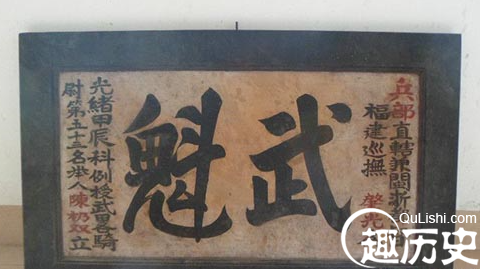 兵部直轄兼閩浙
福建巡撫 榮光
武魁
光緒甲辰科例授武畧騎
尉第五十三名舉人陳双立
QuLishi.com
趣历史